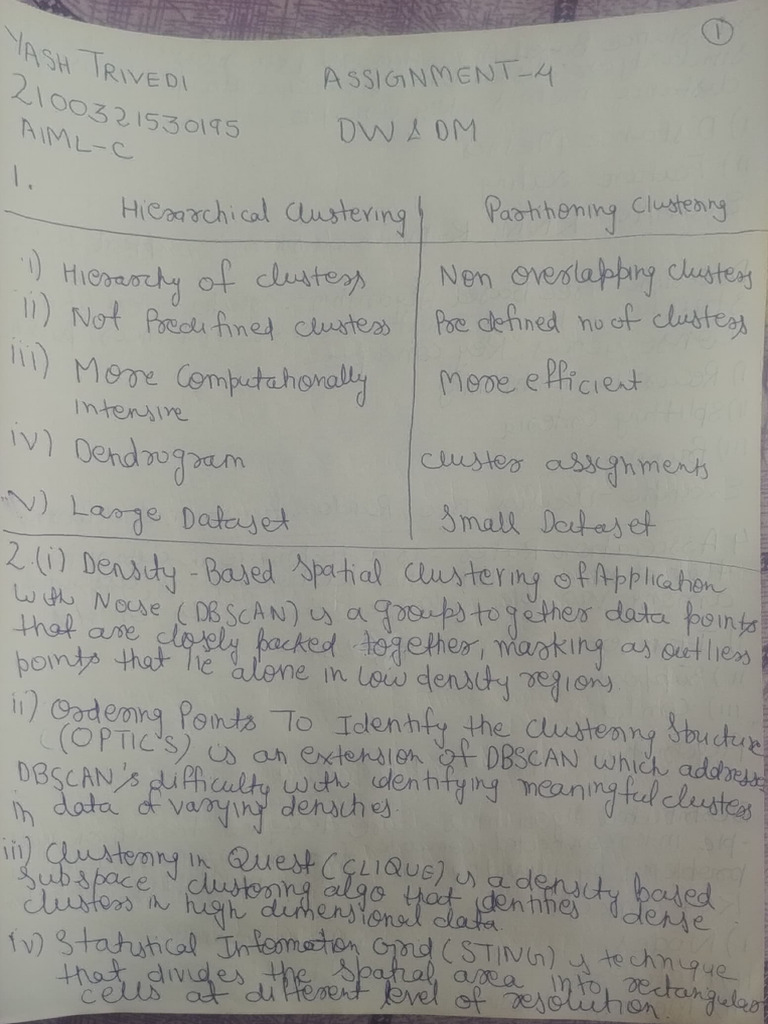 1
YASH TRIVEDI
ASSIGNMENT-4
2100321530195
DW & DM
AIML-C
1.
Hierarchical Clustering | Partitioning Clustering
i) Hierarchy of clusters | Non overlapping clusters
ii) Not Predifined clusters | Pre defined no of clusters
iii) More Computationally | More efficient
intensive
iv) Dendrogram | cluster assignments
v) Large Dataset | Small Dataset
2.(i) Density-Based Spatial Clustering of Application
with Noise (DBSCAN) is a groups together data points
that are closely packed together, marking as outliers
points that lie alone in low density regions.
ii) Ordering Points To Identify the Clustering Structure
(OPTIC'S) is an extension of DBSCAN which address
DBSCAN's difficulty with identifying meaningful clusters
in data of varying densities.
iii) Clustering in Quest (CLIQUE) is a density based
subspace clustering algo that identifies dense
clusters in high dimensional data.
iv) Statistical Information Grid (STING) is technique
that divides the spatial area into rectangular
cells at different level of resolution.